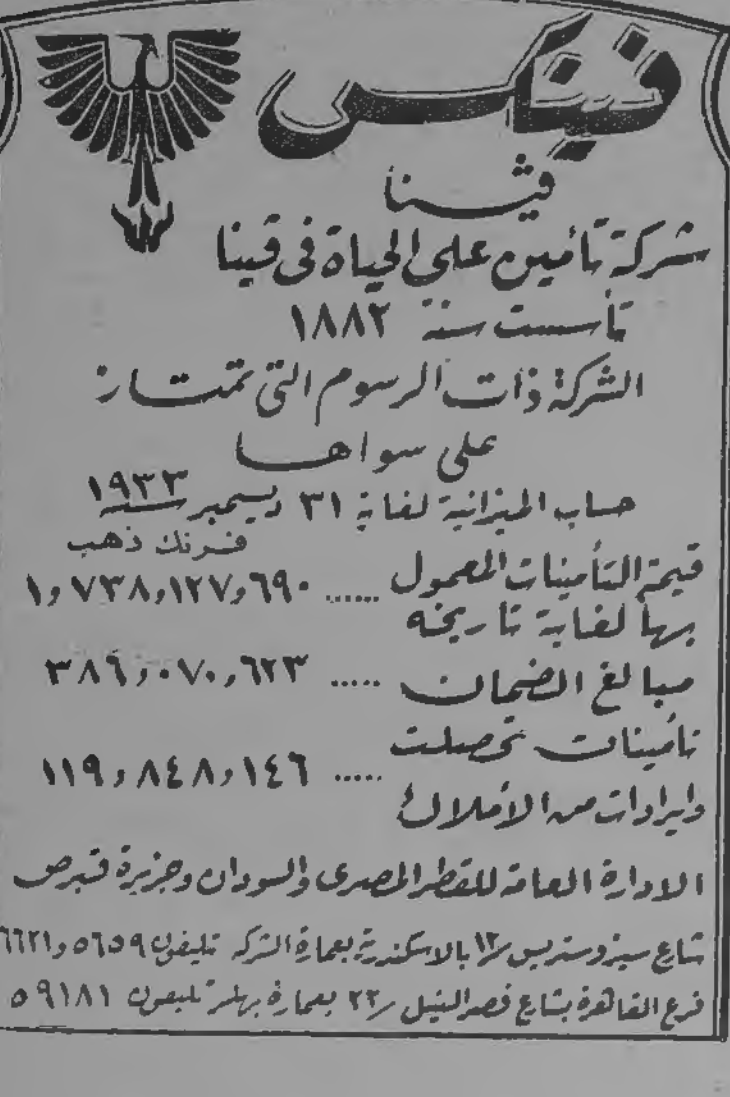 فينكس
ڤينا
شركة تأمين على الحياة فى ڤينا
تأسست سنة ١٨٨٢
الشركة ذات الرسوم التى تمتاز
على سواها
حساب الميزانية لغاية ٣١ ديسمبر سنة ١٩٣٣
فرنك ذهب
قيمة التأمينات المعمول ...... ١,٧٣٨,١٢٧,٦٩٠
بها لغاية تاريخه
مبالغ الضمان ..... ٣٨٦,٠٧٠,٦٢٣
تأمينات تحصلت
..... ١١٩,٨٤٨,١٤٦
وايرادات من الأملاك
الادارة العامة للقطر المصرى والسودان وجزيرة قبرص
شارع سيزوستريس ١٢ بالاسكندرية بعمارة الشركة تليفون ٥٦٥٩ و٦٦٢١
فرع القاهرة بشارع قصر النيل ٢٢ بعمارة بهلر تليفون ٥٩١٨١